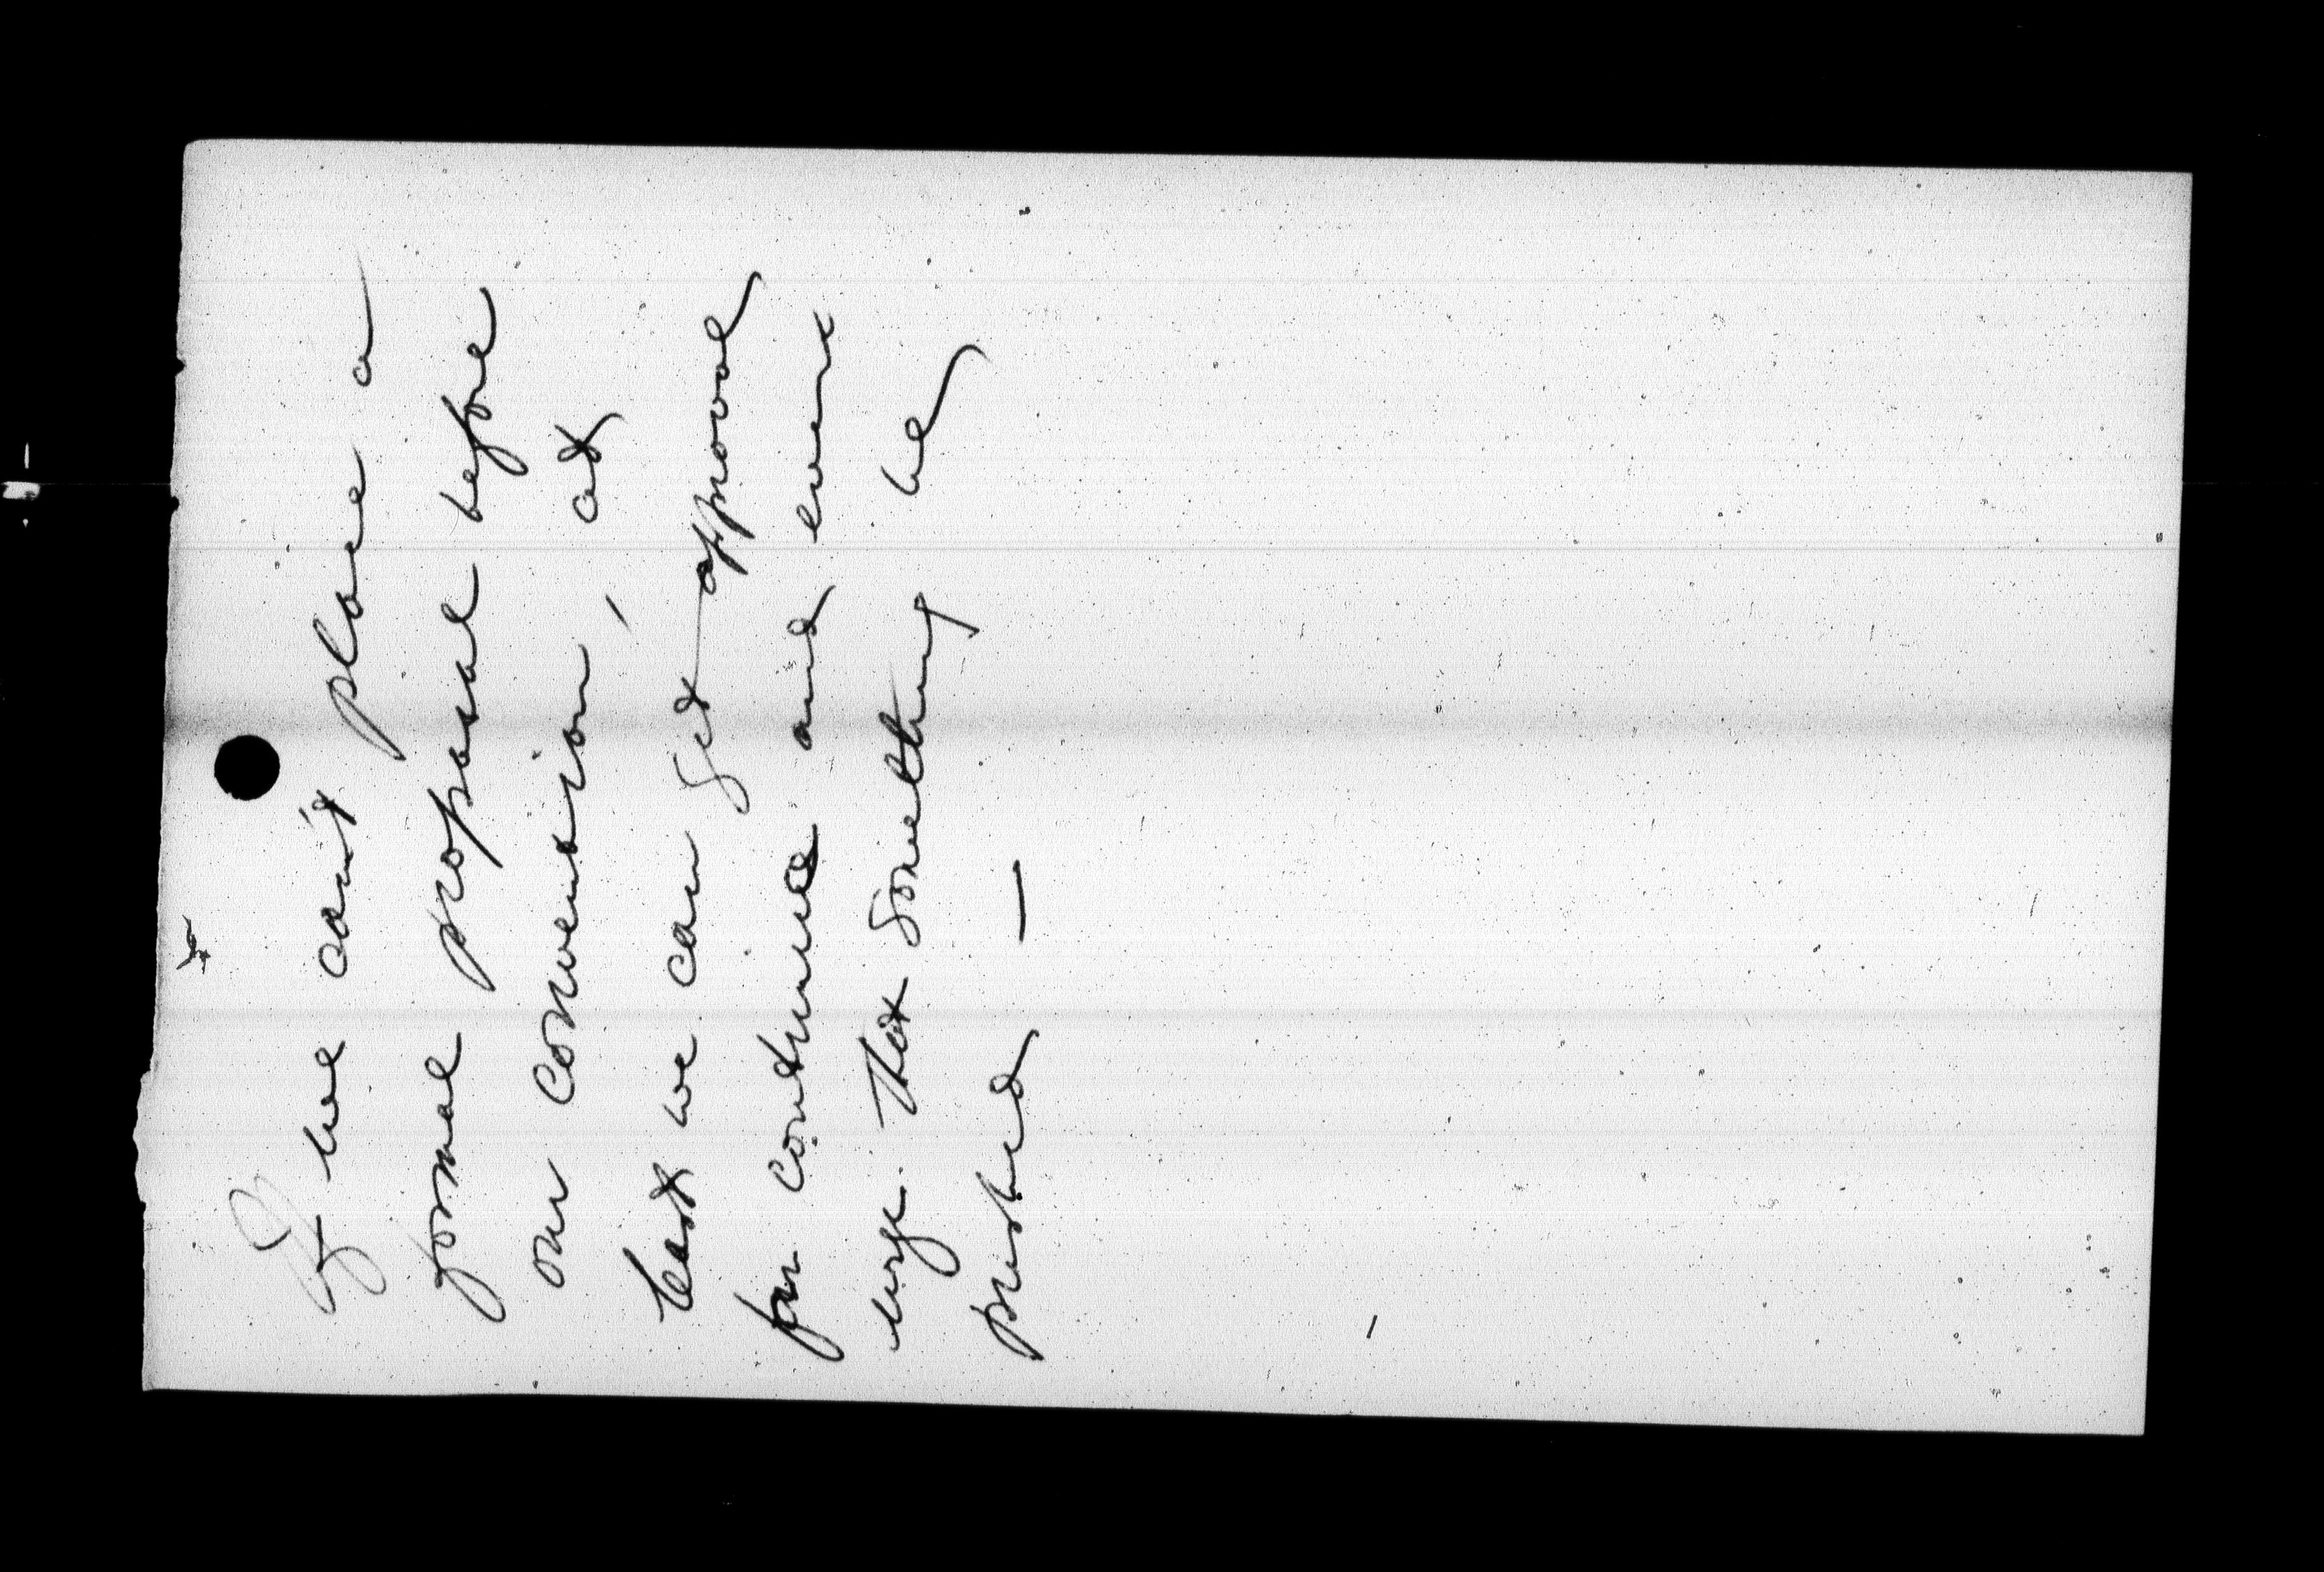 If we can't place a
formal proposal before
our convention, at
least we can get approval
for continued and even
urge that something be
pushed —